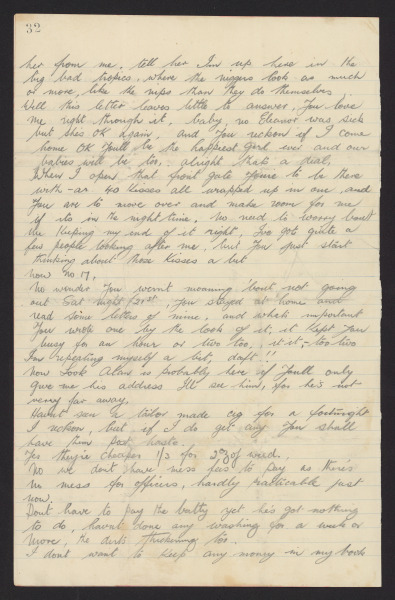 32
her from me, tell her I'm up here in the
big bad tropics, where the niggers look as much
or more, like the nips than they do themselves.
Well this letter leaves little to answer, you love
me right through it, baby, no Eleanor was sick
but she's OK again, and you reckon if I come
home OK you'll be the happiest girl ever and our
babies will be too, alright that's a deal,
When I open that front gate you're to be there
with 40 kisses all wrapped up in one and
you are to move over and make room for me
if its in the night time. No need to worry bout
the keeping my end of it right, I've got quite a
few people looking after me, but you just start
thinking about those kisses a bit
now no 17,
No wonder you weren't moaning bout not going
out Sat night 21st, you stayed at home and
read some letters of mine, and what's important
you wrote one by the look of it, it kept you
busy for an hour or two too, it it, too two
I'm repeating myself a bit, daft!!
now look Alan is probably here if you'll only
give me his address I'll see him, for he's not
very far away.
Havnt seen a tailor made cig for a fortnight
I reckon, but if I do get any you shall
have them post haste.
Yes they're cheaper 1/3 for 2oz of weed.
No we don't have mess fees to pay as there's
no mess for officers, hardly practicable just
now.
Dont have to pay the batty yet he's got nothing
to do, havnt done any washing for a week or
more, the dirts thickening too.
I dont want to keep any money in my book